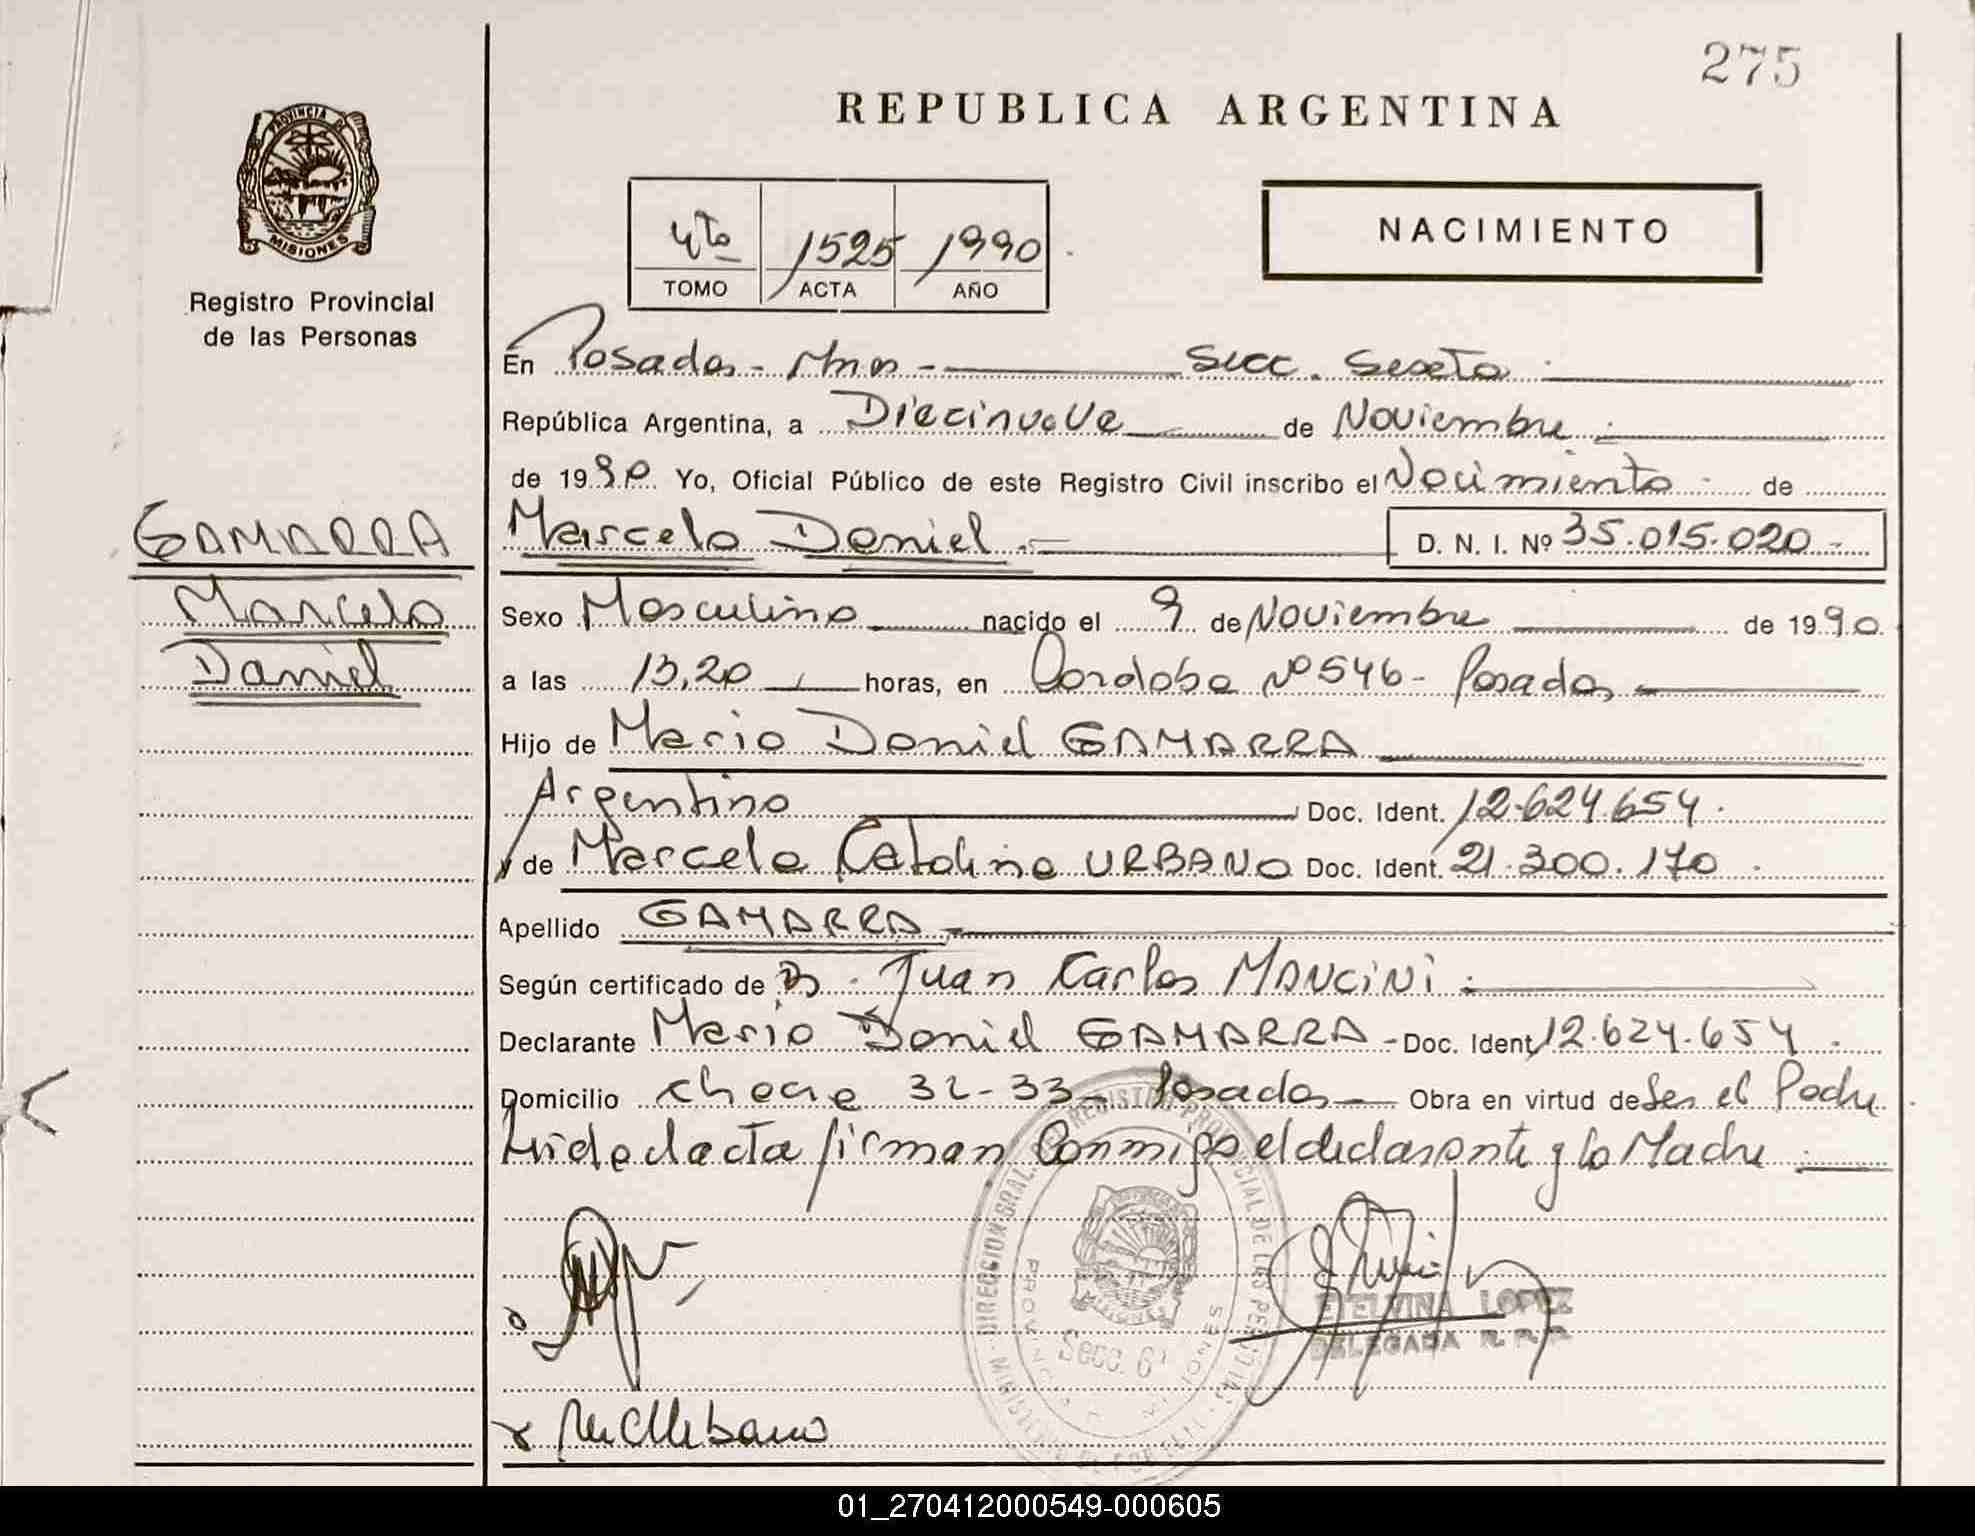 275
REPUBLICA ARGENTINA
PROVINCIA DE
MISIONES
Registro Provincial
de las Personas
4to 1525 1990
TOMO ACTA AÑO
NACIMIENTO
En Posadas - Mnes - Secc. Sexta
República Argentina, a Diecinueve de Noviembre
de 1990 Yo, Oficial Público de este Registro Civil inscribo el Nacimiento de
GAMARRA
Marcelo Daniel
Marcelo Daniel D. N. I. Nº 35.015.020 -
Sexo Masculino nacido el 9 de Noviembre de 1990
a las 13,20 horas, en Cordoba Nº 546 - Posadas
Hijo de Mario Daniel GAMARRA
Argentino Doc. Ident. 12.624.654.
y de Marcela Catalina URBANO Doc. Ident. 21.300.170
Apellido GAMARRA
Según certificado de Dr. Juan Carlos MANCINI
Declarante Mario Daniel GAMARRA - Doc. Ident. 12.624.654
Domicilio 32-33 Posadas Obra en virtud de Ser el Padre
acta firman Conmigo el declarante y la Madre
DIRECCION GRAL. DEL REGISTRO PROVINCIAL DE LAS PERSONAS
PROVINCIA MISIONES
Secc. 6ª
ETELVINA LOPEZ
DELEGADA R.P.P.
01_270412000549-000605